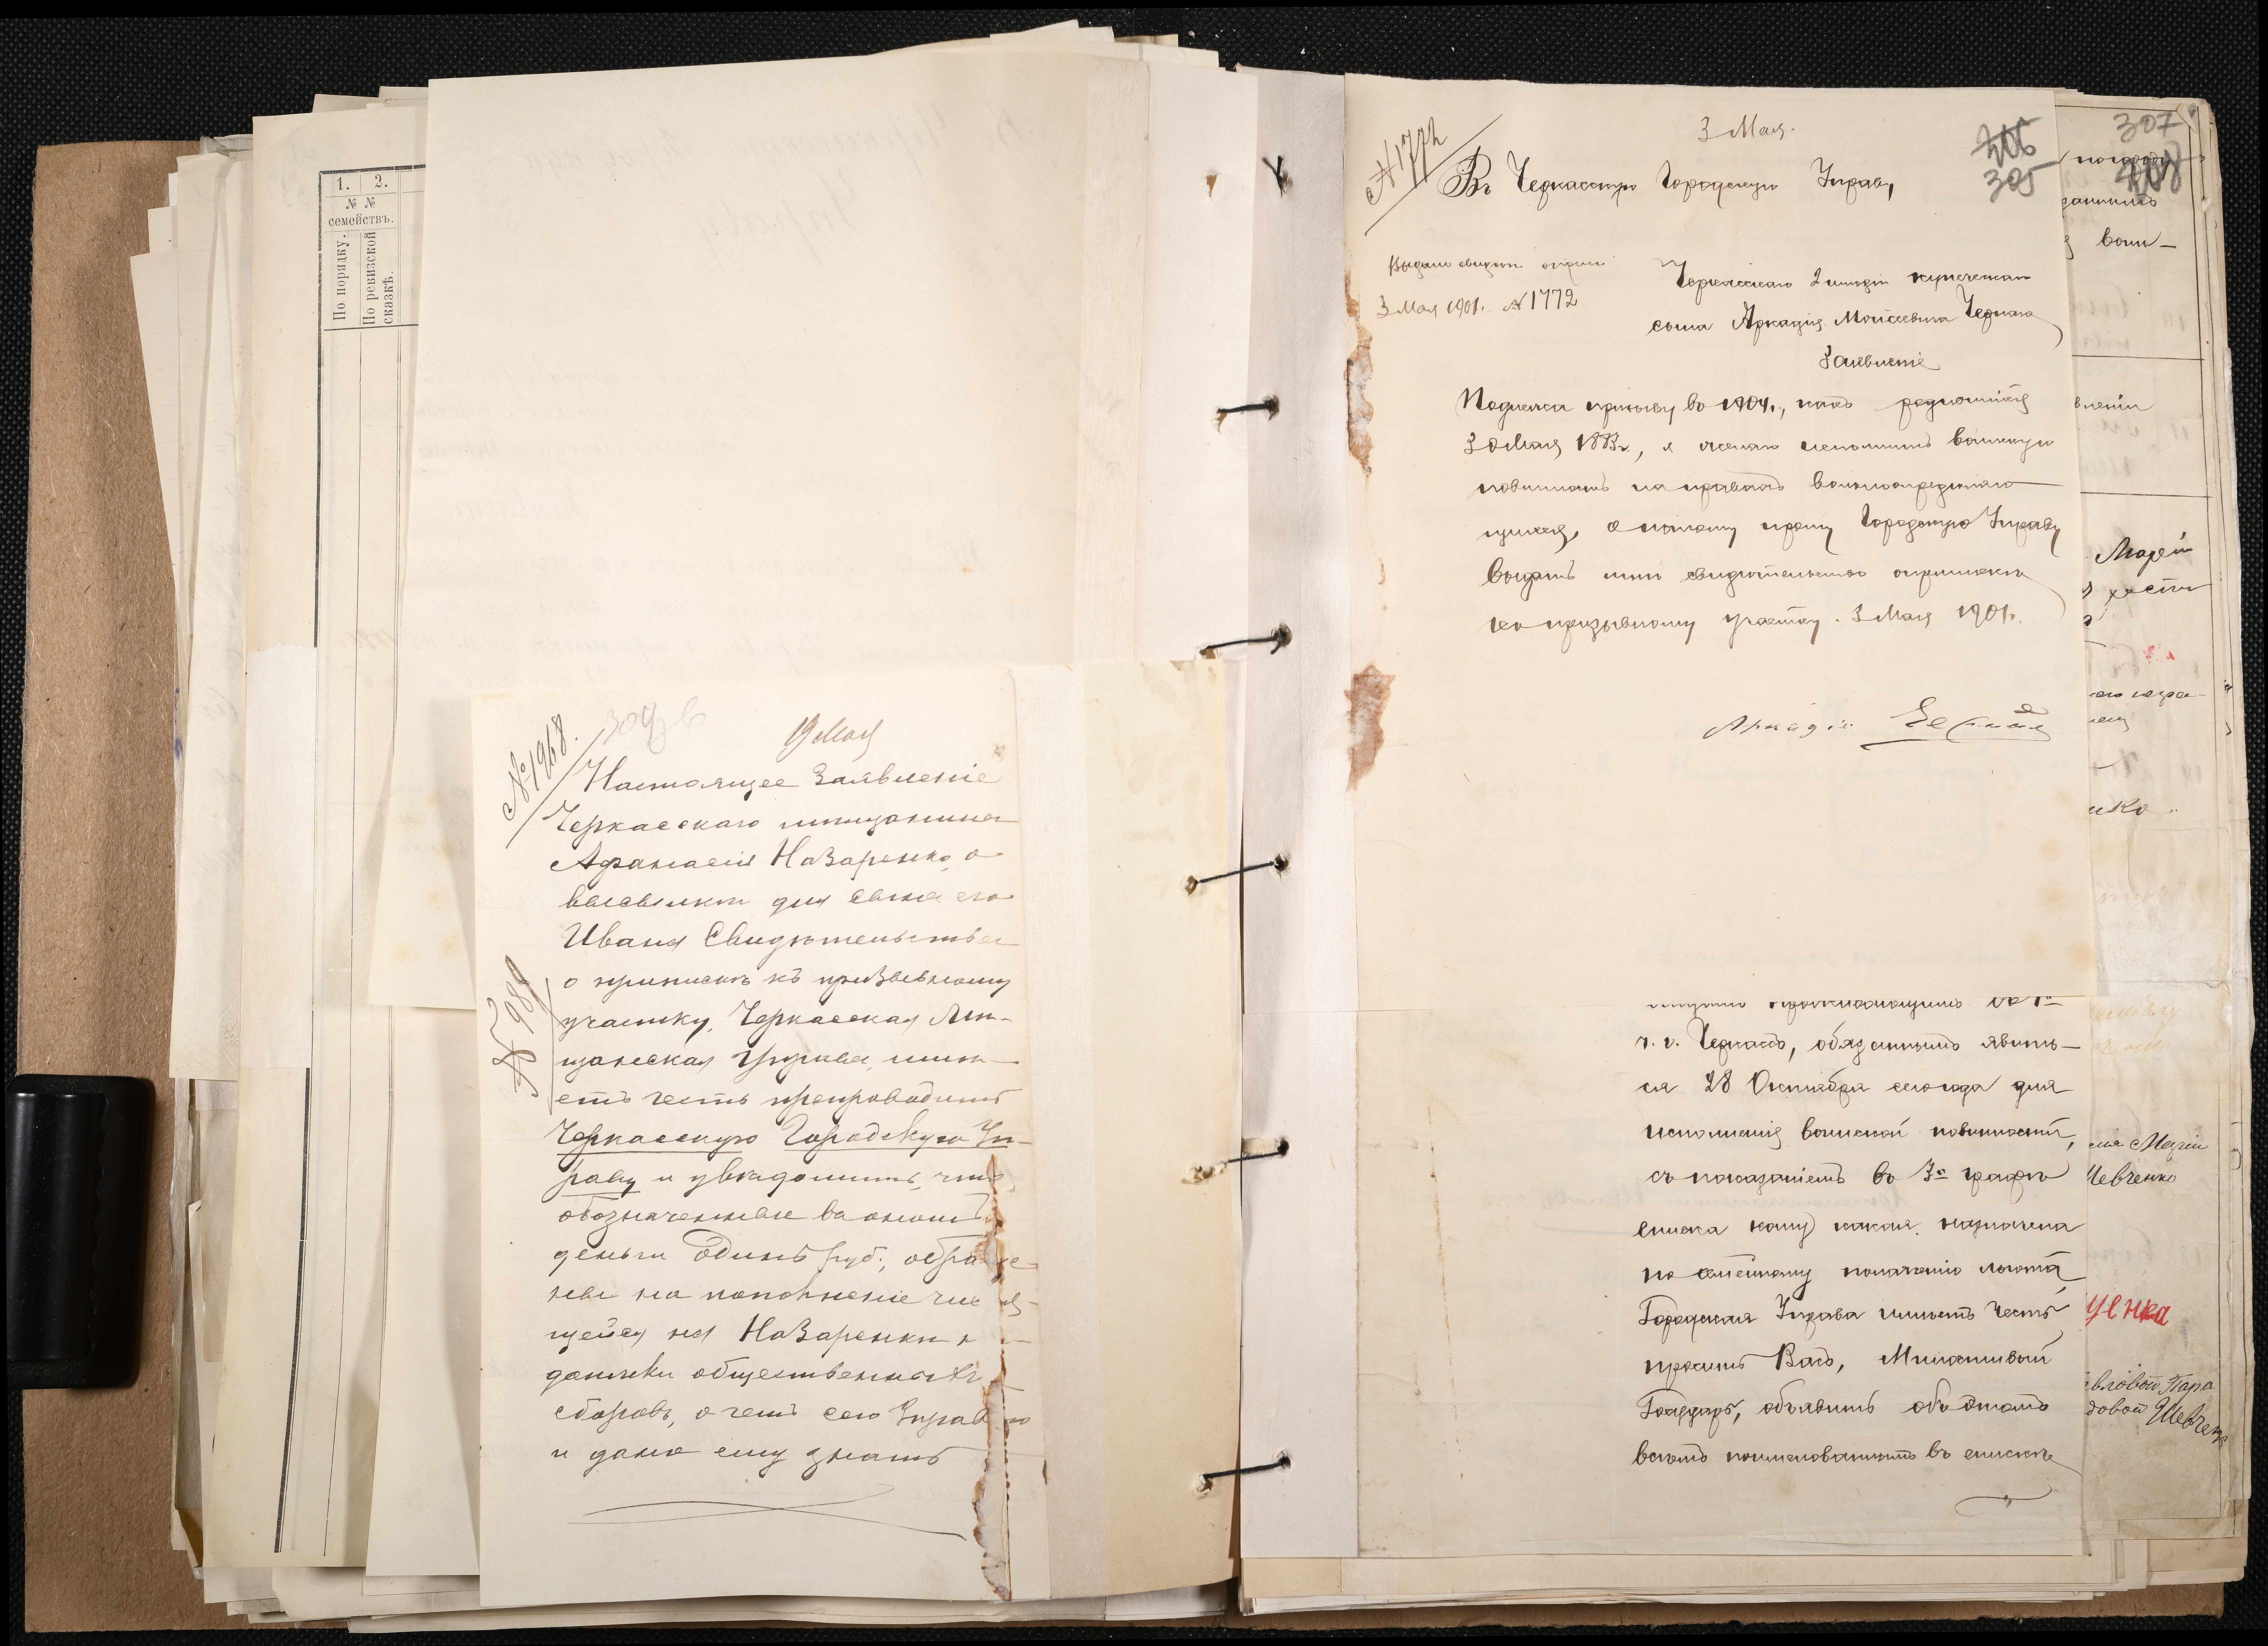 1. 2.
№ №
семействъ.
По порядку.
По ревизской
сказкѣ.
304 об
19 Мая
№ 1968.
Настоящее Заявленіе
Черкасскаго мѣщанина
Афанасія Назаренко, о
высылкѣ для сына его
Ивана Свидѣтельства
о припискѣ къ призывному
участку, Черкасская Мѣ-
щанская Управа, имѣ-
етъ честь препроводить
Черкасскую Городскую Уп-
раву и увѣдомить, что
обозначенные въ ономъ
деньги Одинъ руб., обраще-
ны на пополненіе числ
щейся на Назаренки
даники общественныхъ
сборовъ, о чемъ сею Управ
и дано ему знать
№ 989
3 Мая.
№ 1772
305
Въ Черкасскую Городскую Управу
Выдано свидѣт. о припис.
3 Мая 1901. № 1772
Черкасскаго 2 гильдіи купеческаго
сына Аркадія Моисеевича Чернаго
Заявленіе
Подлежа призыву въ 1904г., какъ родившійся
30 Мая 1883г., я желаю исполнить воинскую
повинность на правахъ вольноопредѣляю-
щагося, а потому прошу Городскую Управу
выдать мнѣ свидѣтельство о припискѣ
къ призывному участку. 3 Мая 1901г.
Аркадій Черный
проживающимъ во 1й
ч. г. Черкассъ, обязаннымъ явить-
ся 28 Октября сего года для
исполненія воинской повинности,
съ показаніемъ въ 3й графѣ
списка кому какая назначена
по семейному положенію льгота,
Городская Управа имѣетъ честь
просить Васъ, Милостивый
Государь, объявить объ этомъ
всѣмъ поименованнымъ въ спискѣ
307
воин-
Марѣи
Мазіи
Шевченко
Пара
довой Шевченк